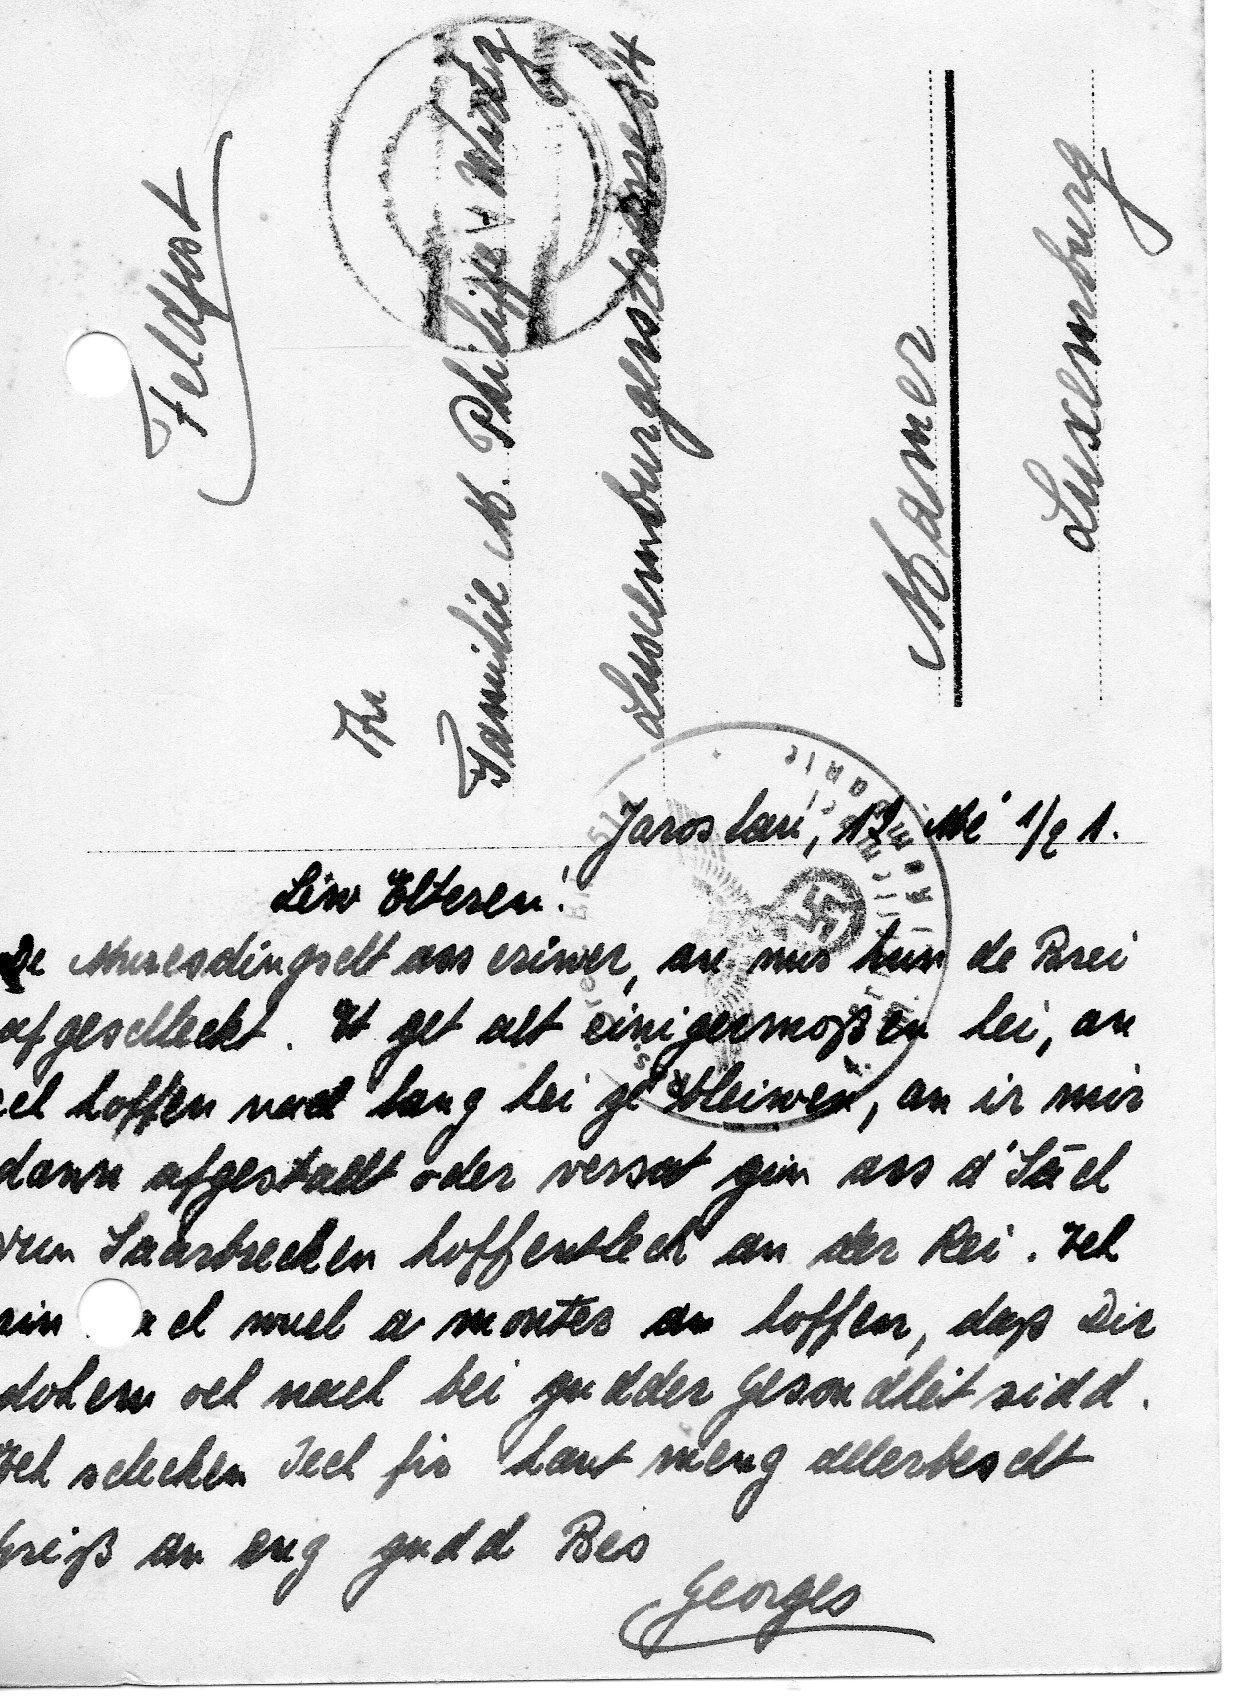 Feldpost
An
Familie M. Philippe Wirtz
Luxemburgerstrasse 34
Mamer
Luxemburg
Jaroslau, 17
Léiw Elteren!
De ass eriwer, an mir hun de Brei
afgeschleckt. Et get alt einigermoßen hei, an
ech hoffen nach lang hei ze bleiwen, an ir mir
dann afgestallt oder versat gin ass d'Säch
vun Saarbrecken hoffentlech an der Rei. Ech
sin nach wuel a monter an hoffen, daß Dir
dohem och nach bei gudder Gesondheit sidd.
Ech schecken Iech fir haut meng allerbescht
Greiß an eng gudd Bes
Georges